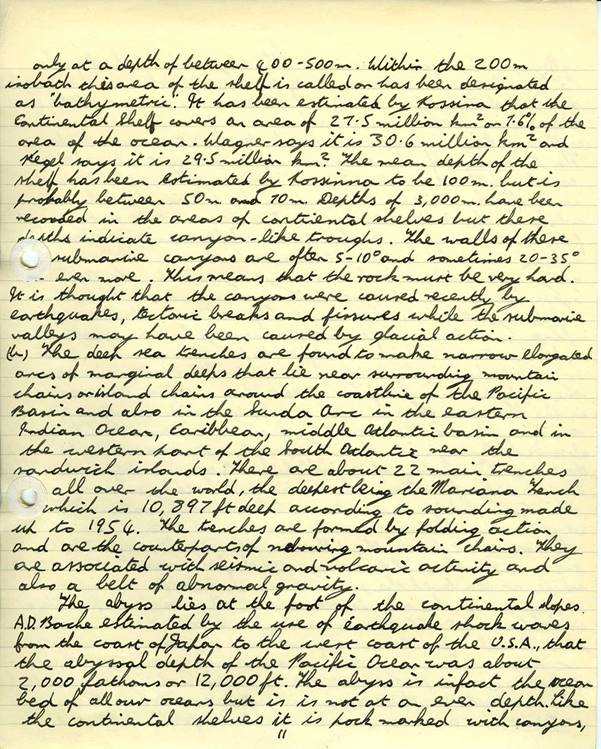 only at a depth of between 400-500m. Within the 200m
isobath this area of the shelf is called or has been designated
as "bathymetric". It has been estimated by Kossina that the
Continental Shelf covers an area of 27.5 million km² or 7.6% of the
area of the ocean. Wagner says it is 30.6 million km² and
Kegel says it is 29.5 million km². The mean depth of the
shelf has been estimated by Kossinna to be 100m. but is
probably between 50m and 70m. Depths of 3,000m. have been
recorded in the areas of contiental shelves but these
depths indicate canyon-like troughs. The walls of these
submarine canyons are often 5-10° and sometimes 20-35°
even more. This means that the rock must be very hard.
It is thought that the canyons were caused recently by
earthquakes, tectonic breaks and fissures while the submarine
valleys may have been caused by glacial action.
(b) The deep sea trenches are found to make narrow elongated
arcs of marginal deeps that lie near surrounding mountain
chains or island chains around the coastline of the Pacific
Basin and also in the Sunda Arc in the eastern
Indian Ocean, Caribbean, middle Atlantic basin and in
the western part of the South Atlantic near the
sandwich islands. There are about 22 main trenches
all over the world, the deepest being the Mariana Trench
which is 10,897 ft deep according to sounding made
up to 1954. The trenches are formed by folding action
and are the counterparts of mountain chains. They
are associated with seismic and volcanic activity and
also a belt of abnormal gravity.
The abyss lies at the foot of the continental slopes.
A.D. Bache estimated by the use of earthquake shock waves
from the coast of Japan to the west coast of the U.S.A., that
the abyssal depth of the Pacific Ocean was about
2,000 fathoms or 12,000 ft. The abyss is infact the ocean
bed of all our oceans but is is not at an even depth. Like
the continental shelves it is pock marked with canyons,
11